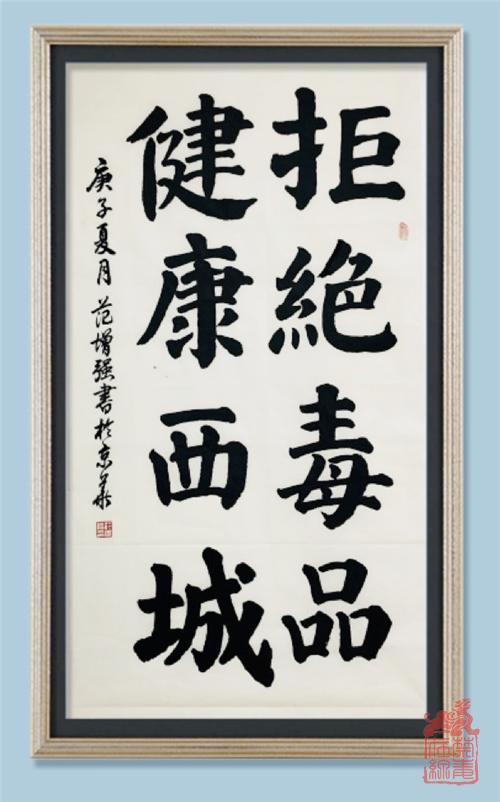 拒絕毒品
健康西城
庚子夏月范增强書於京華